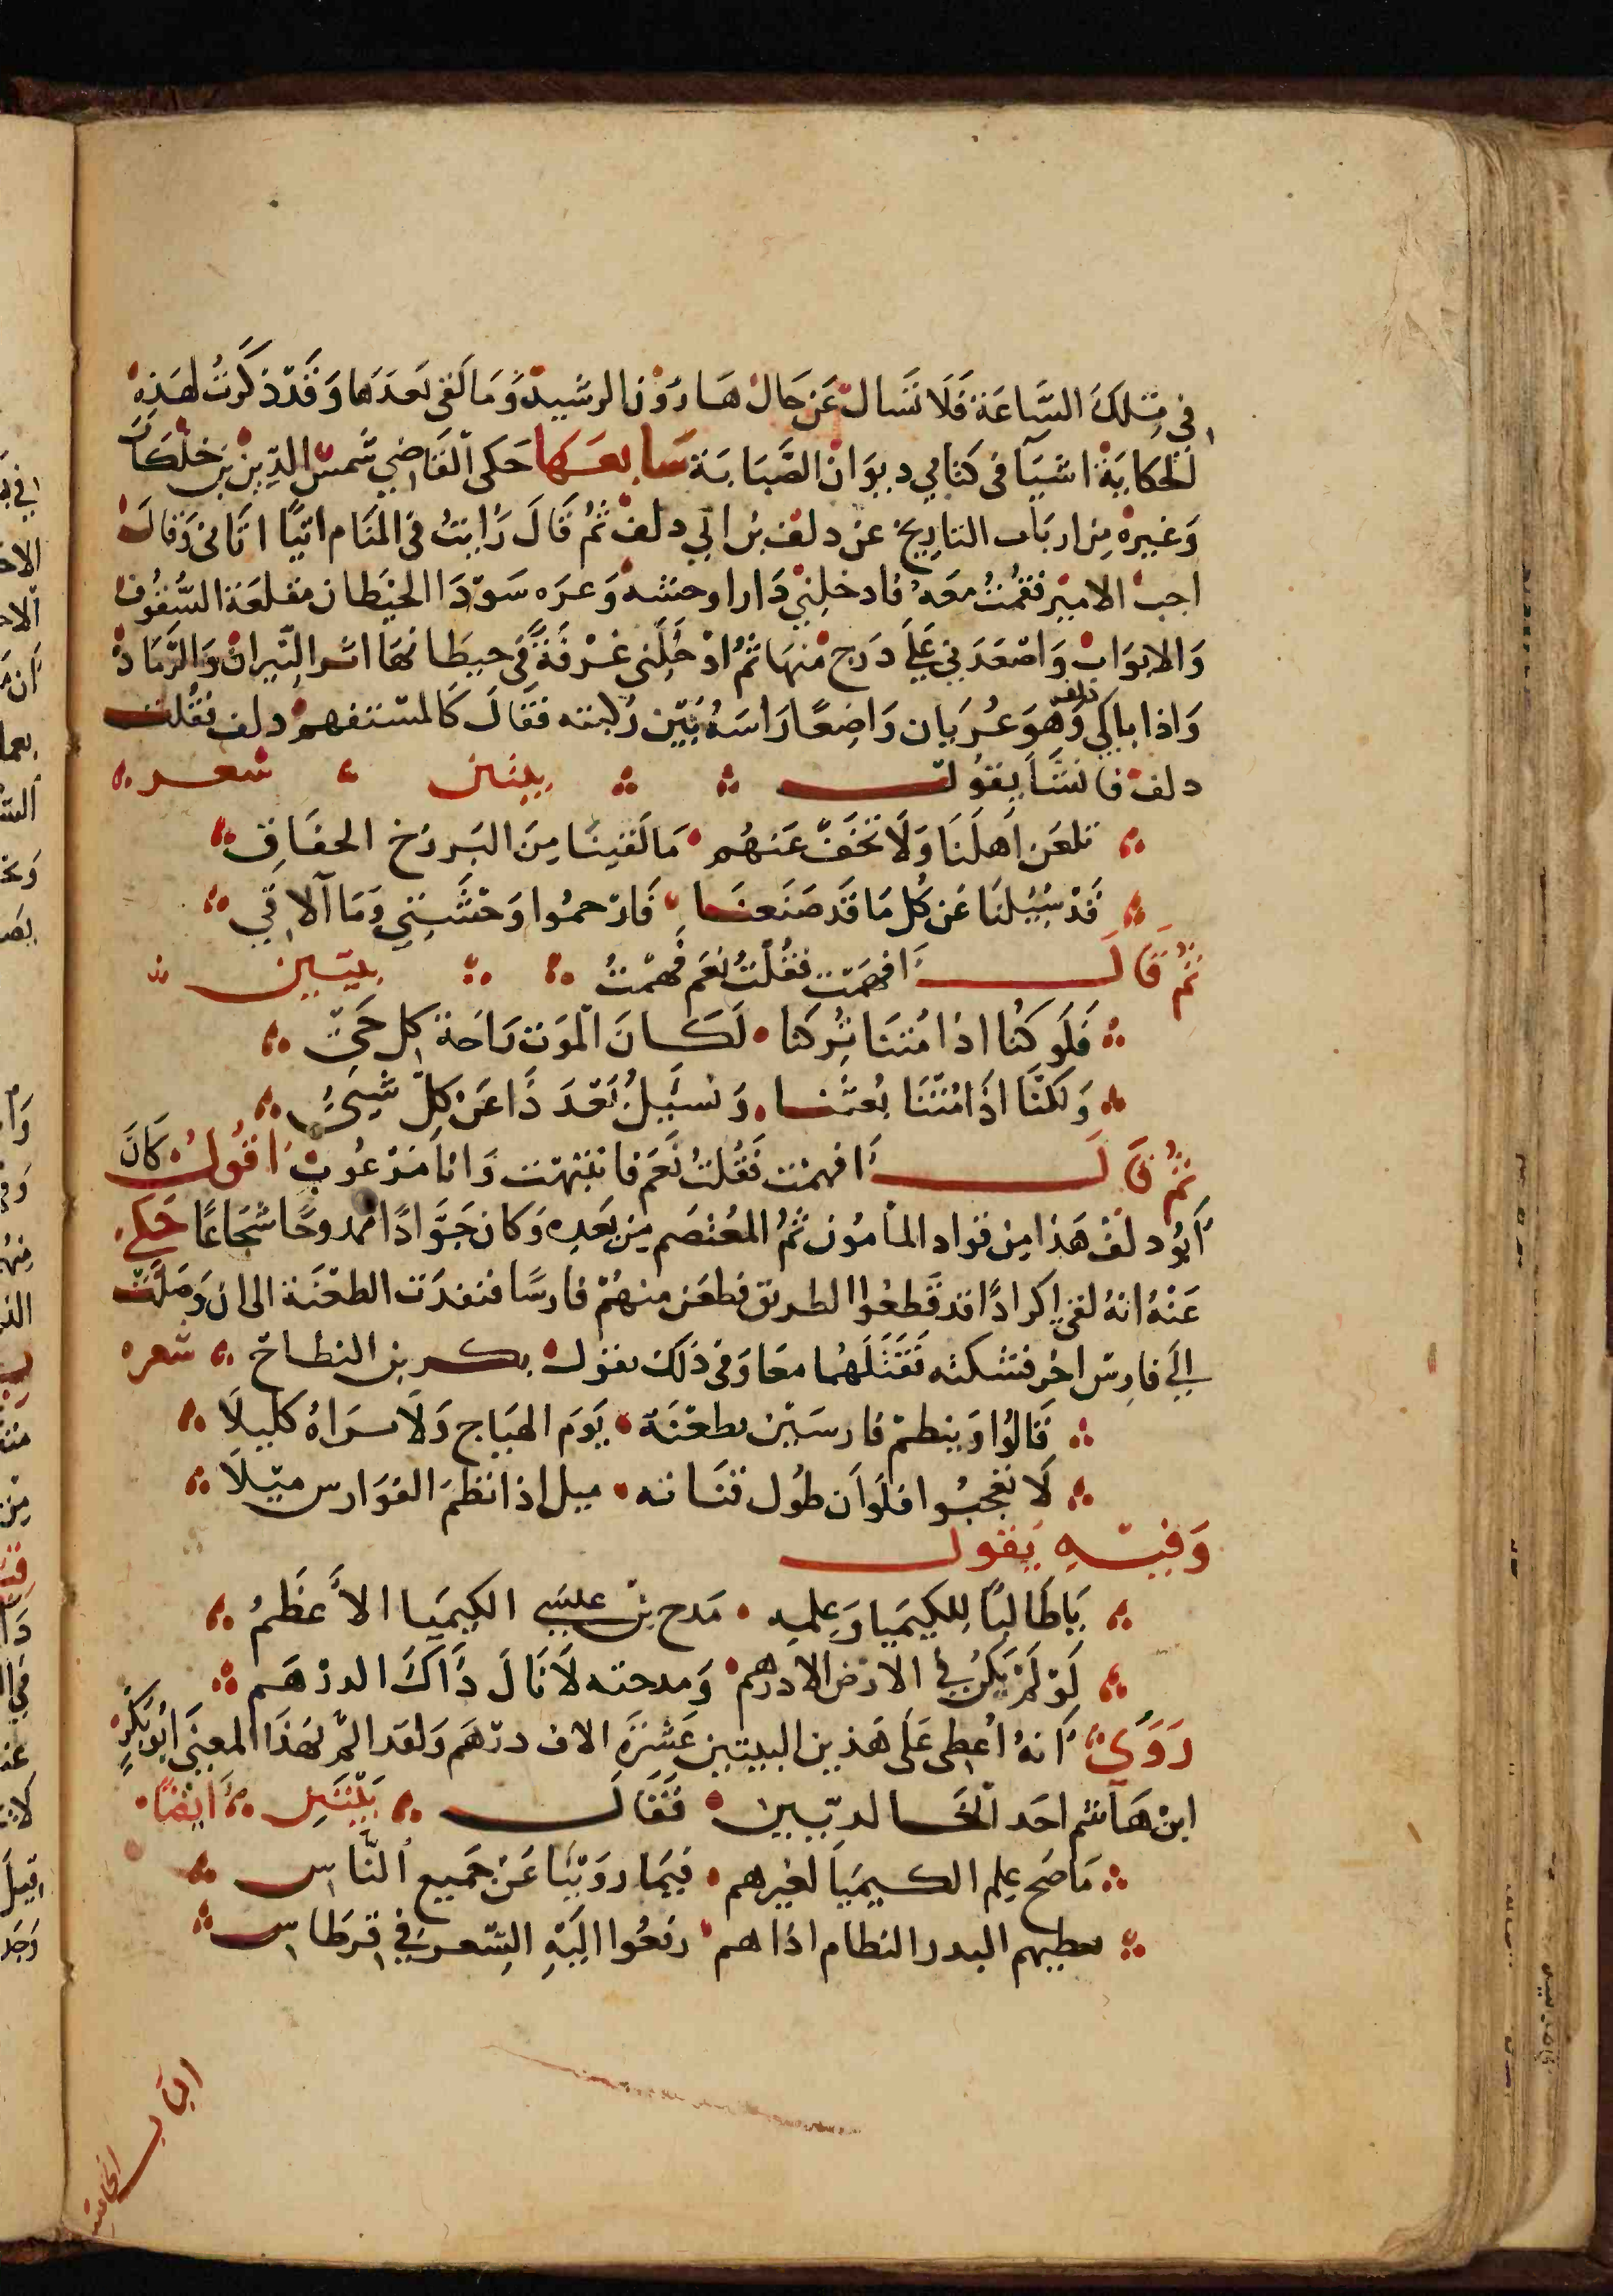 في تلك الساعة فلا تسال عن حال هارون الرشيد وما لقي بعدها وقد ذكرت لهذه
الحكاية اشيا في كتابي ديوان الصبابة سابعها حكى القاضي شمس الدين بن خلكان
وغيره من ارباب التاريخ عن دلف بن ابي دلف ثم قال رايت في المنام اتيا اتاني وقال
اجب الامير فقمت معه فادخلني دارا وحشه وعره سودا الحيطان مقلعة السقوف
والابواب واصعدني على درج منها ثم ادخلني غرفة في حيطانها اثر النيران والرماد
واذا بابي دلف وهو عريان واضعا راسه بين ركبته فقال كالمستفهم دلف فقلت
دلف فانشا يقول بيتين شعر
تلعن اهلنا ولا تخف عنهم ما لقينا من البرزخ الخفاق
قد سيلنا عن كل ما قد صنعنا فارحموا وحشتي وما الاقي
ثم قال افهمت فقلت نعم فهمت بيتين
فلو كنا اذا متنا تركنا لكان الموت راحة كل حي
ولكنا اذا متنا بعثنا ونسيل بعد ذا عن كل شيء
ثم قال افهمت فقلت نعم فانتبهت وانا مرعوب اقول كان
ابو دلف هذا من قواد المامون ثم المعتصم من بعده وكان جوادا ممدوحا شجاعا حكي
عنه انه لقي اكرادا قد قطعوا الطريق فطعن منهم فارسا فنفدت الطعنة الى ان وصلت
الي فارس اخر فشكته فقتلهما معا وفي ذلك يقول بكر بن النطاح شعر
قالوا وينظم فارسين بطعنة يوم الهياج ولا يراه كليلا
لا تعجبوا فلو ان طول قناته ميل اذا نظم الفوارس ميلا
وفيه يقول
يا طالبا للكيميا وعلمه مدح بن عيسى الكيميا الاعظم
لو لم يكن في الارض الا درهم ومدحته لانال ذاك الدرهم
روي انه اعطى على هذين البيتين عشرة الاف درهم ولقد الم بهذا المعنى ابو بكر
ابن هاشم احد الخالديين فقال بيتين ايضا
ما صح علم الكيميا لغيرهم فيما روينا عن جميع الناس
يعطيهم البدر النظام اذا هم رفعوا اليه الشعر في قرطاس
الباب الخامس